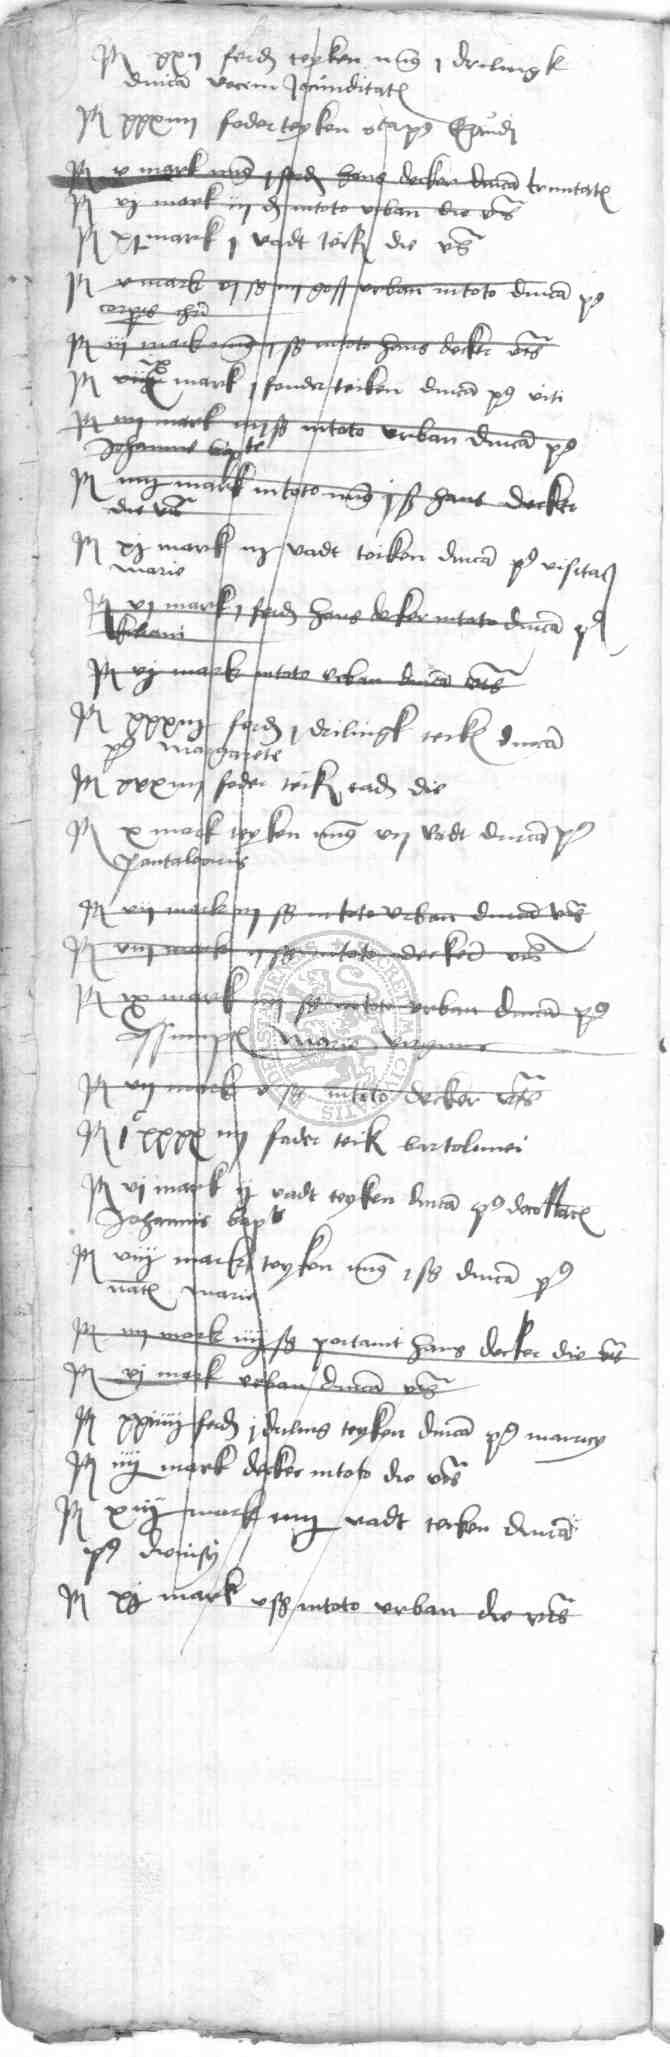 xxij ferd teyken mg j drilingk
dnica vocem Jocunditat
xxxiiij feder teyken
v mark mg j ferd hans decker dnica trinitat
vj mark iij d intoto urban die uts
xj mark j vadt teik die uts
v mark vj ß urban intoto dnica p9
corpis chri
iij mark mg j ß intoto hans decker uts
mark j feder teiken dnica p9 viti
iiij mark iij ß intoto urban dnica p9
Johannis bapte
iiij mark intoto mg j ß hans decker
die uts
xj mark iij vadt teiken dnica p9 visitat
marie
vj mark j ferd hans decker intoto dnica p9
kiliani
vj mark intoto urban dnica uts
xxxiij ferd j drilingk teik dnica
p9 margarete
xxxiiij feder teik ead die
x mark teyken mg vij vadt dnica p9
pantaleonis
vij mark iij ß intoto urban dnica uts
viij mark ij ß intoto decker uts
ix mark iiij ß intoto urban dnica p9
Assumpt marie virginis
vij mark v ß intoto decker uts
feder teik bartolomei
vj mark ij vadt teyken dnica p9 decollat
Johannis bapte
viij mark teyken mg j ß dnica p9
nat marie
iij mark iiij ß portavit hans decker die uts
vj mark urban dnica uts
xxiiij ferd j driling teyken dnica p9 mauricij
iiij mark decker intoto die uts
xiij mark iiij vadt teiken dnica
p9 dionisij
xj mark v ß intoto urban die uts